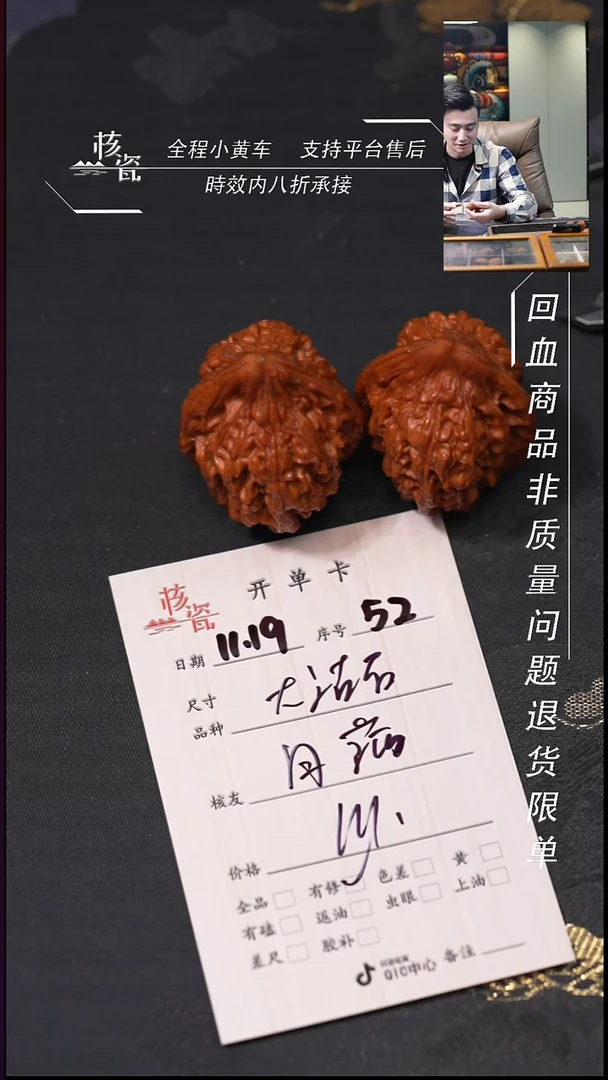 核瓷
全程小黄车 支持平台售后
時效内八折承接
回血商品非质量问题退货限单
核瓷
开单卡
日期 11.19 序号 52
尺寸
品种
核友
价格
全品 有修 色差 黄
有磕 返油 虫眼 上油
差尺 胶补
QIC中心 备注